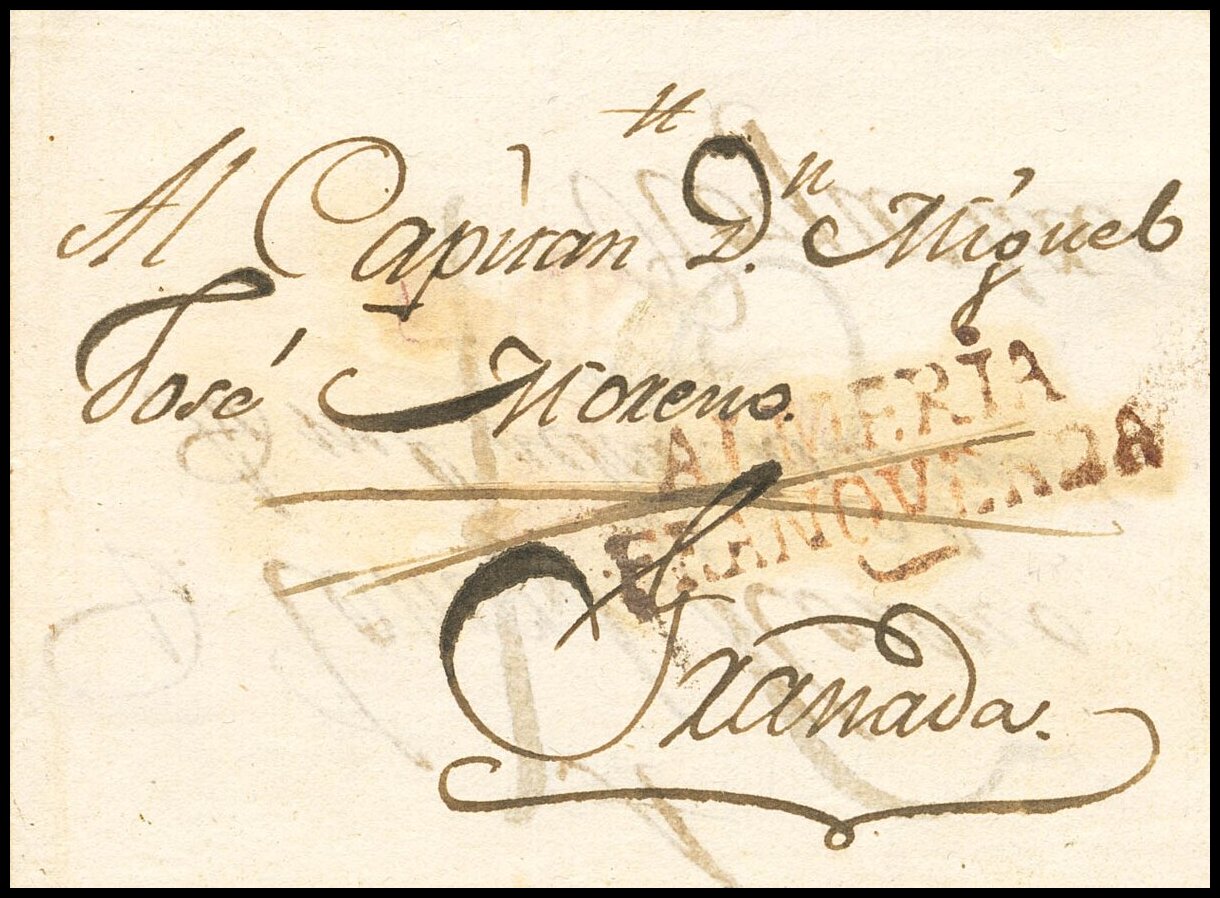 Al Capitan Dn. Miguel
José Moreno.
ALMERIA
FRANQUEADA
Granada.